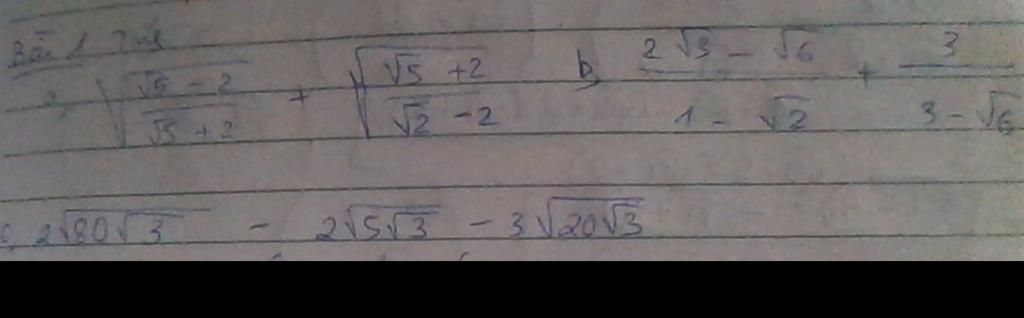 Bài 1 Tính
a, √((√5 - 2)/(√5 + 2)) + √((√5 + 2)/(√2 - 2)) b, (2√3 - √6)/(1 - √2) + 3/(3 - √6)
c, 2√(80√3) - 2√(5√3) - 3√(20√3)